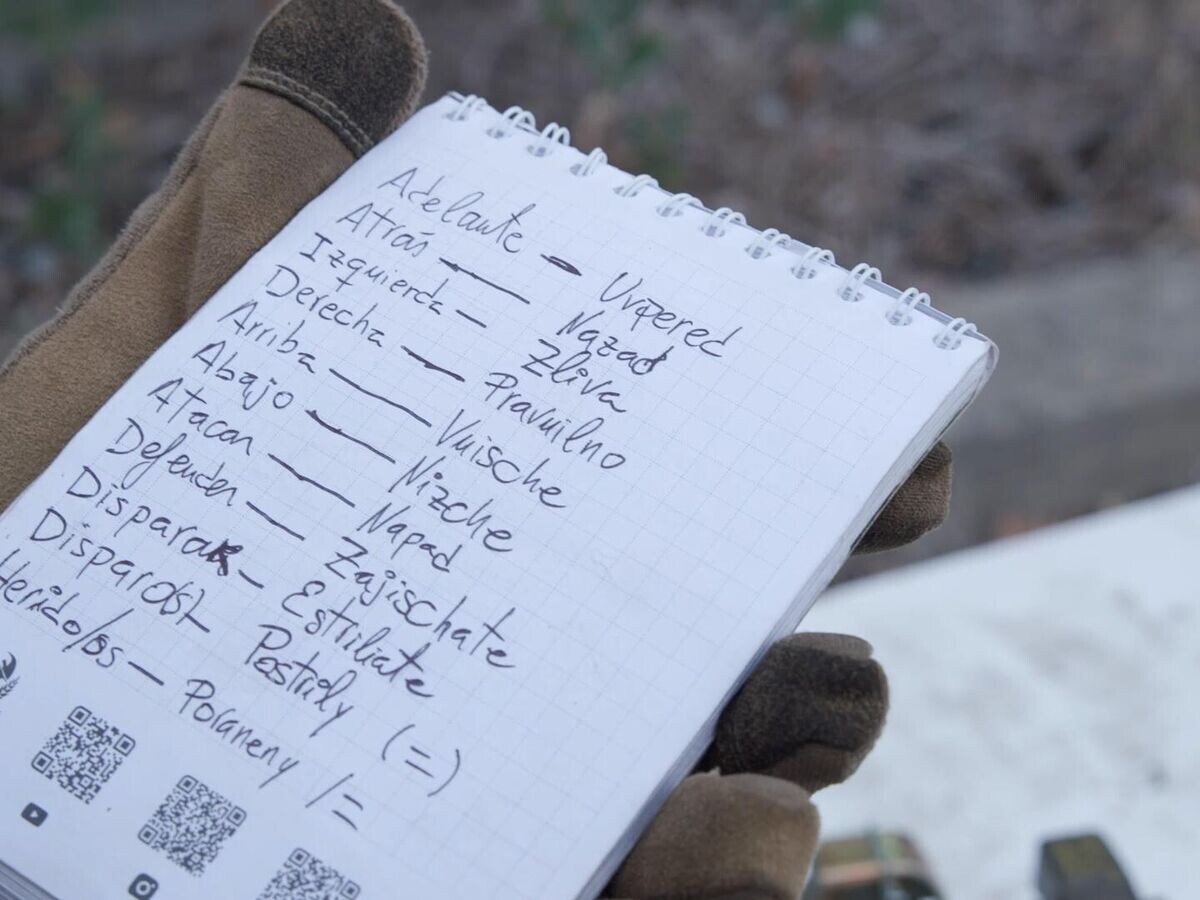 Adelante — Uvpered
Atrás — Nazad
Izquierda — Zliva
Derecha — Pravuilno
Arriba — Vuische
Abajo — Nizche
Atacar — Napad
Defender — Zajischate
Disparar — Estriliate
Disparos — Pestrily (=)
Herido/os — Poraneny /=